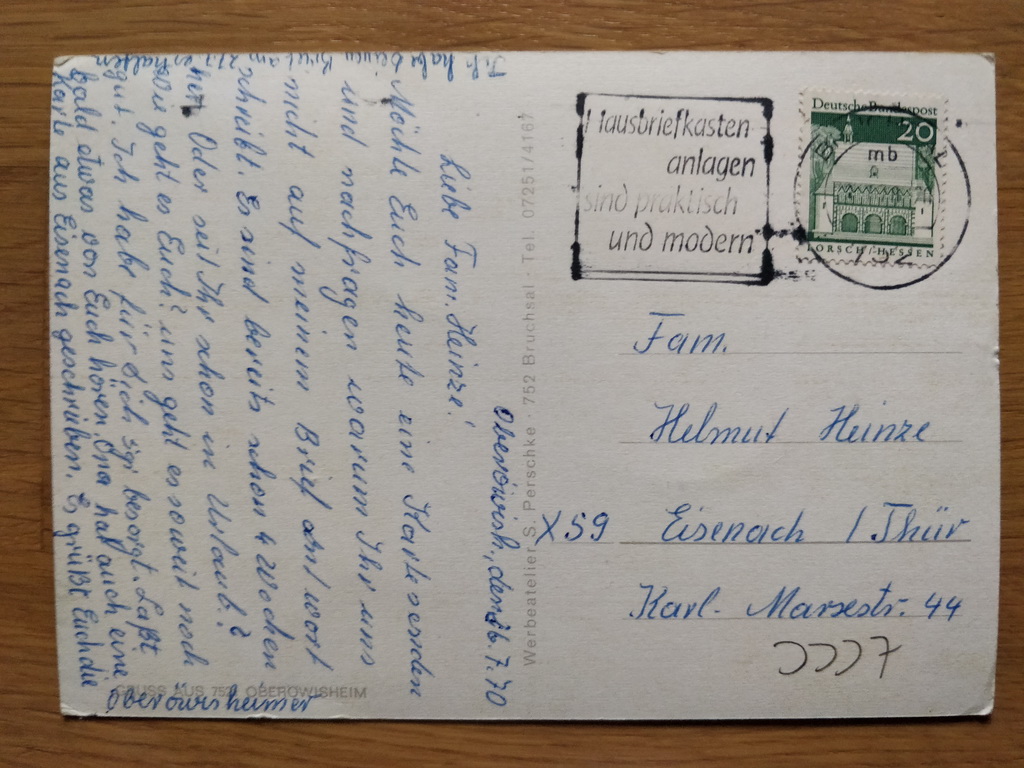 Oberöwish., den 26.7.70
Liebe Fam. Heinze!
Möchte Euch heute eine Karte senden
und nachfragen warum Ihr uns
nicht auf meinem Brief antwort
schreibt. Es sind bereits schon 4 Wochen
her. Oder seit Ihr schon in Urlaub?
Wie geht es Euch? uns geht es soweit noch
gut. Ich habe für Dich besorgt. Laßt
bald etwas von Euch hören Oma hat auch eine
Karte aus Eisenach geschrieben. Es grüßt Euch die
Oberöwisheimer
Ich habe deinen Brief am erhalten
GRUSS AUS 7521 OBERÖWISHEIM
Werbeatelier S. Perschke · 752 Bruchsal · Tel. 07251/4167
Hausbriefkasten-
anlagen
sind praktisch
und modern
Deutsche Bundespost
20
mb
LORSCH/HESSEN
752
Fam.
Helmut Heinze
X59 Eisenach / Thür
Karl-Marxstr. 44